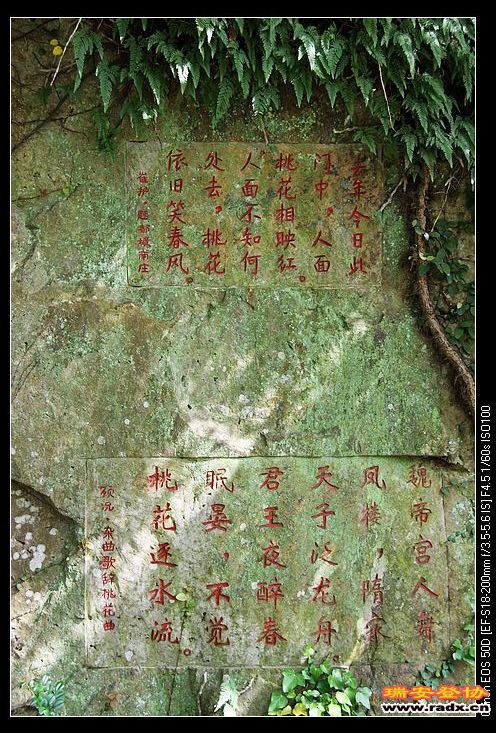 去年今日此
门中，人面
桃花相映红。
人面不知何
处去，桃花
依旧笑春风。
崔护·题都城南庄
魏帝宫人舞
凤楼，隋家
天子泛龙舟。
君王夜醉春
眠晏，不觉
桃花逐水流。
顾况·杂曲歌辞桃花曲
瑞安登协
www.radx.cn
Canon EOS 50D [EF-S18-200mm f/3.5-5.6 IS] F4.5 1/60s ISO100